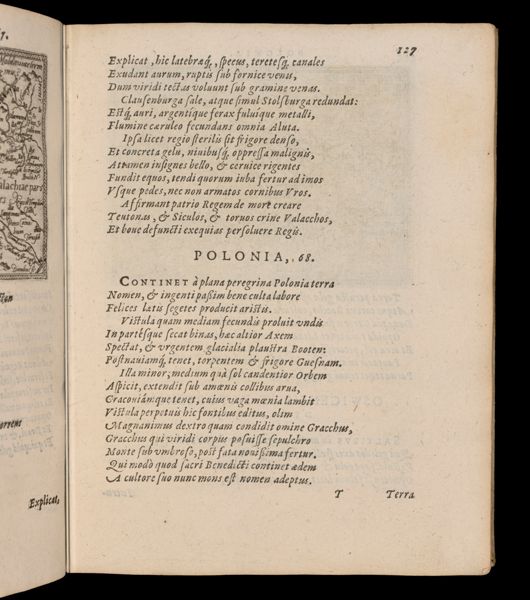 127
Explicat, hic latebræq́;, specus, teretesq́; canales
Exudant aurum, ruptis sub fornice venis,
Dum viridi tectas voluunt sub gramine venas.
Clausenburga sale, atque simul Stolsburga redundat:
Estq́; auri, argentique ferax fuluique metalli,
Flumine cæruleo fecundans omnia Aluta.
Ipsa licet regio sterilis sit frigore denso,
Et concreta gelu, niuibusq́; oppressa malignis,
Attamen insignes bello, & ceruice rigentes
Fundit equos, tendi quorum iuba fertur ad imos
Vsque pedes, nec non armatos cornibus Vros.
Affirmant patrio Regem de more creare
Teutonas, & Siculos, & toruos crine Valacchos,
Et boue defuncti exequias persoluere Regis.
POLONIA, . 68.
CONTINET à plana peregrina Polonia terra
Nomen, & ingenti paßim bene culta labore
Felices latis segetes producit aristis.
Vistula quam mediam fecundis proluit vndis
In partésque secat binas, hac altior Axem
Spectat, & vrgentem glacialia plaustra Booten:
Postnauiamq́; tenet, torpentem & frigore Guesnam.
Illa minor, medium quà sol candentior Orbem
Aspicit, extendit sub amœnis collibus arua,
Cracouiámque tenet, cuius vaga mœnia lambit
Vistula perpetuis hic fontibus editus, olim
Magnanimus dextro quam condidit omine Gracchus,
Gracchus qui viridi corpus posuisse sepulchro
Monte sub vmbroso, post fata nouißima fertur.
Qui modò quod sacri Benedicti continet ædem
A cultore suo nunc mons est nomen adeptus.
T Terra
Explicat,